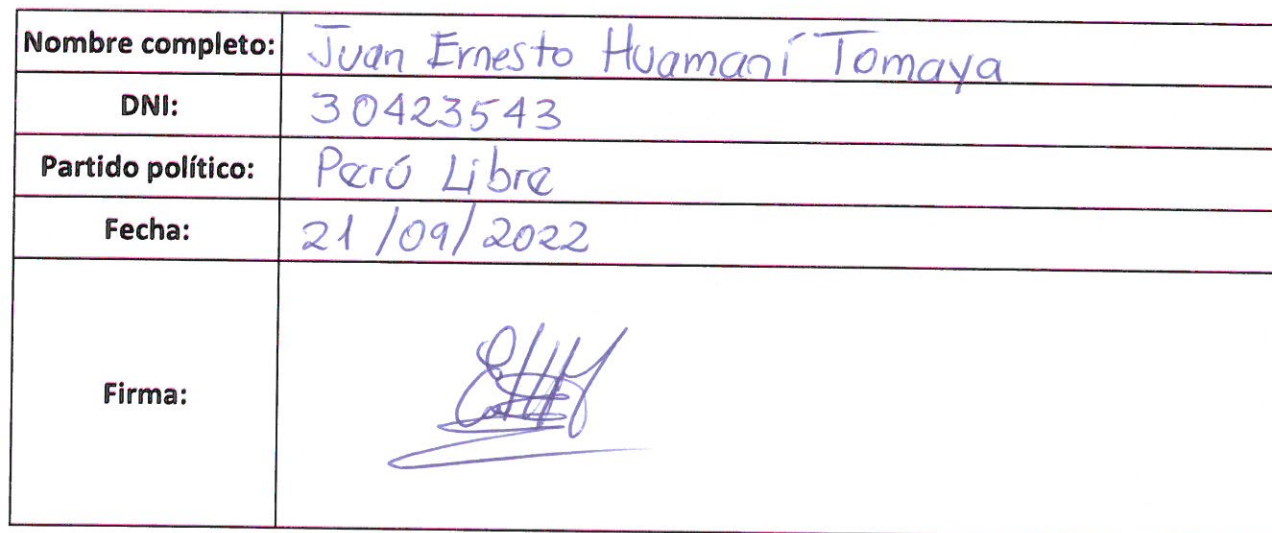 Nombre completo: Juan Ernesto Huamaní Tomaya
DNI: 30423543
Partido político: Perú Libre
Fecha: 21/09/2022
Firma: